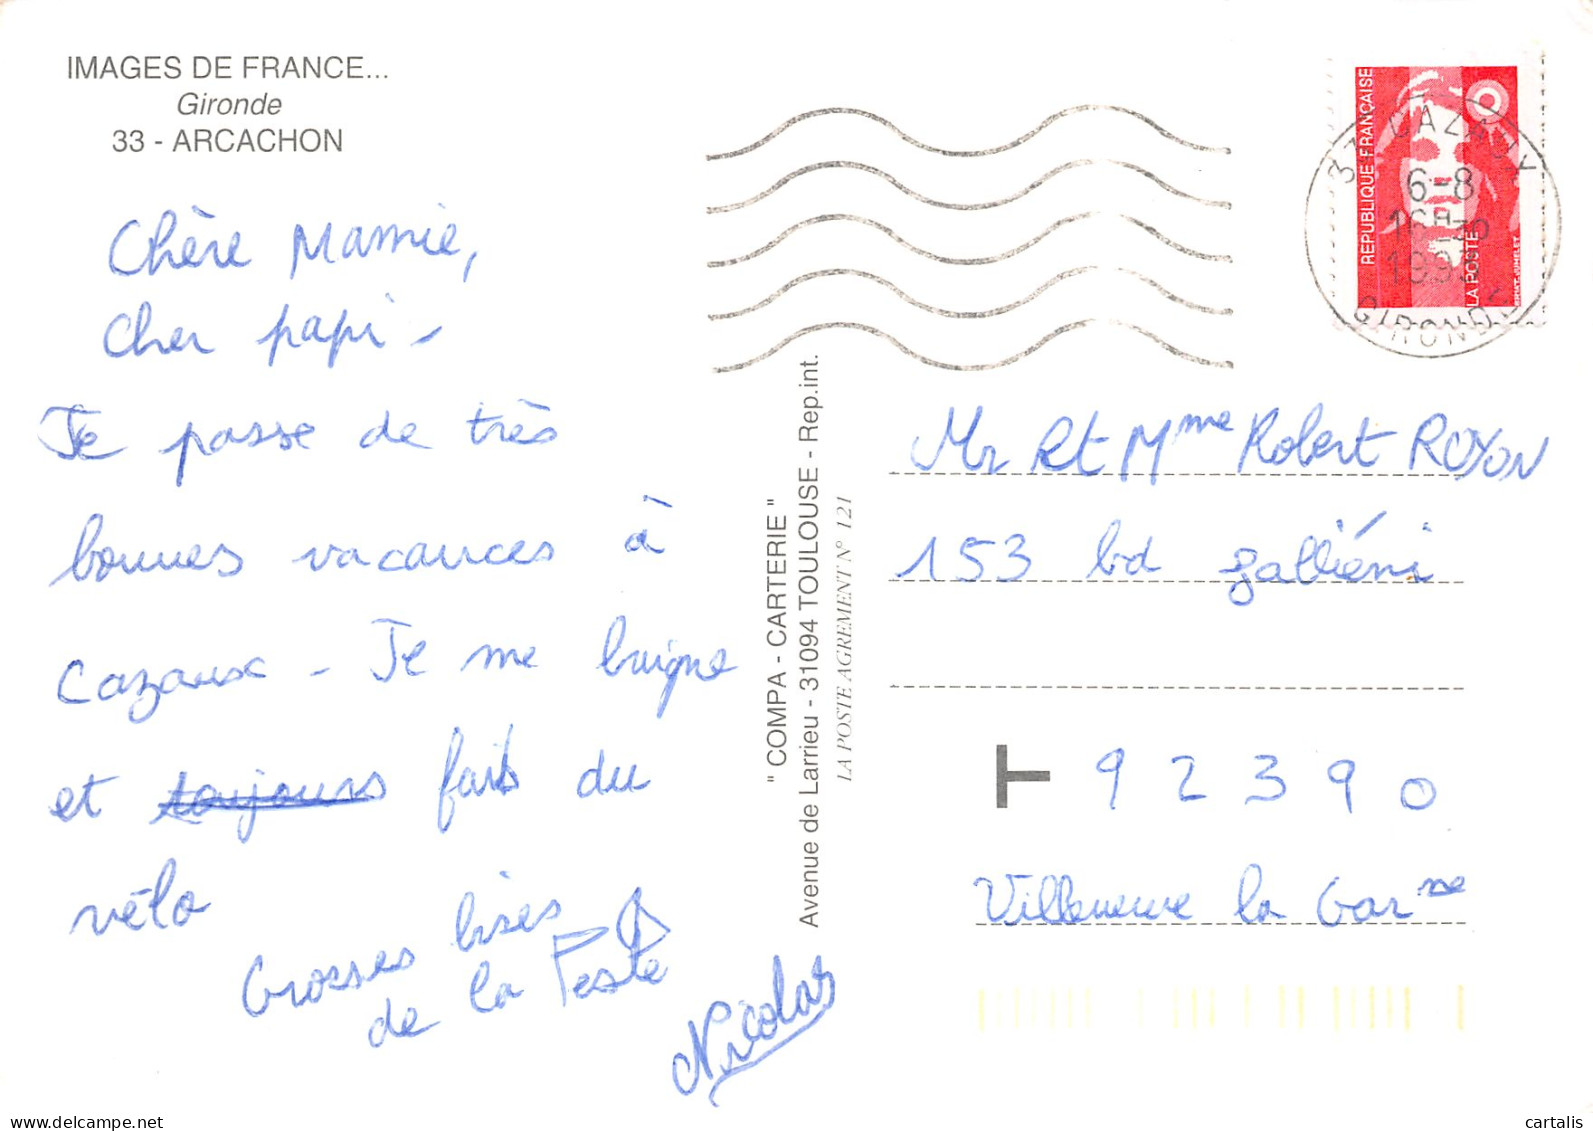 IMAGES DE FRANCE...
Gironde
33 - ARCACHON
Chère Mamie,
Cher papi -
Je passe de très
bonnes vacances à
Cazaux - Je me baigne
et toujours fais du
vélo
Grosses bises
de la Teste
Nicolas
" COMPA - CARTERIE "
Avenue de Larrieu - 31094 TOULOUSE - Rep.int.
LA POSTE AGREMENT N° 121
REPUBLIQUE FRANÇAISE
LA POSTE
6-8
GIRONDE
Mr et Mme Robert ROYON
153 bd galliéni
T 92390
Villeneuve la Garne
www.delcampe.net
cartalis